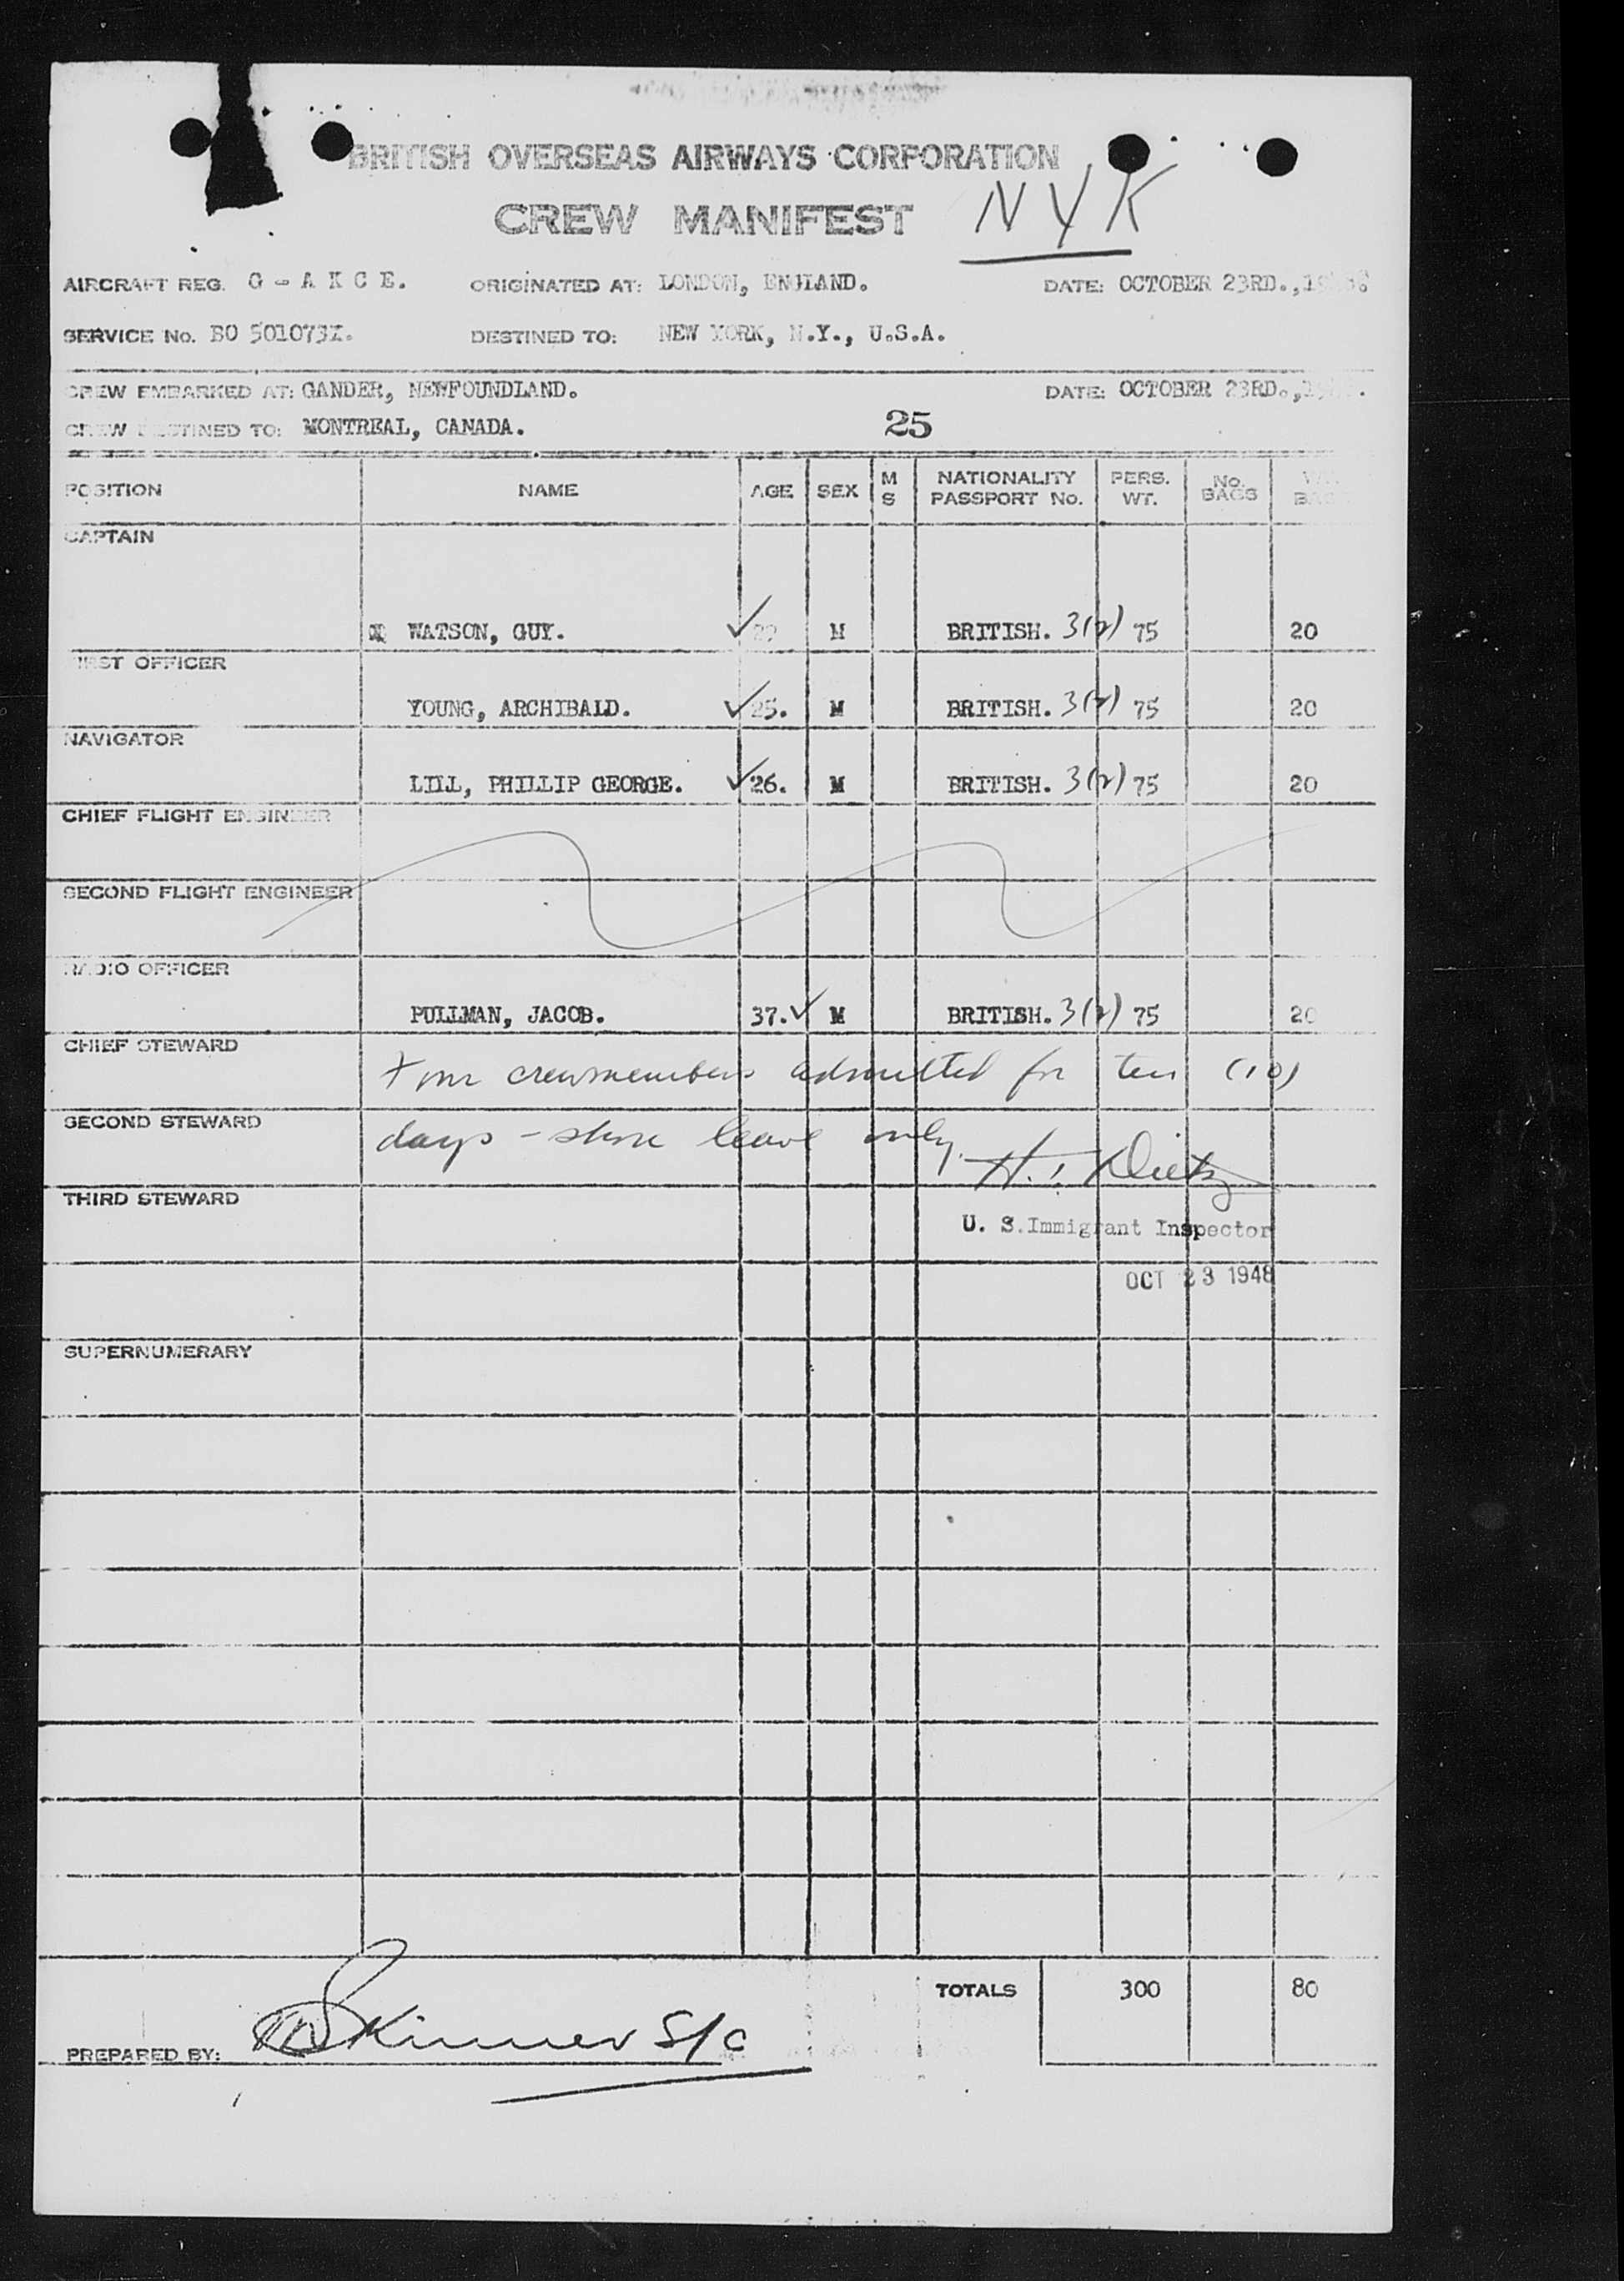 BRITISH OVERSEAS AIRWAYS CORPORATION
CREW MANIFEST NYK
AIRCRAFT REG. G - A K C E. ORIGINATED AT: LONDON, ENGLAND. DATE: OCTOBER 23RD.,
SERVICE No. BO 501073Z. DESTINED TO: NEW YORK, N.Y., U.S.A.
CREW EMBARKED AT: GANDER, NEWFOUNDLAND. DATE: OCTOBER 23RD.,
CREW DESTINED TO: MONTREAL, CANADA. 25
POSITION NAME AGE SEX M S NATIONALITY PASSPORT No. PERS. WT. No. BAGS
CAPTAIN
WATSON, GUY. M BRITISH. 3(2) 75 20
FIRST OFFICER
YOUNG, ARCHIBALD. 25. M BRITISH. 3(2) 75 20
NAVIGATOR
LILL, PHILLIP GEORGE. 26. M BRITISH. 3(2) 75 20
CHIEF FLIGHT ENGINEER
SECOND FLIGHT ENGINEER
RADIO OFFICER
PULLMAN, JACOB. 37. M BRITISH. 3(2) 75 20
CHIEF STEWARD
Four crewmembers admitted for ten (10)
SECOND STEWARD
days - shore leave only.
H. Dietz
THIRD STEWARD
U. S. Immigrant Inspector
OCT 23 1948
SUPERNUMERARY
TOTALS 300 80
PREPARED BY: Skinner S/C